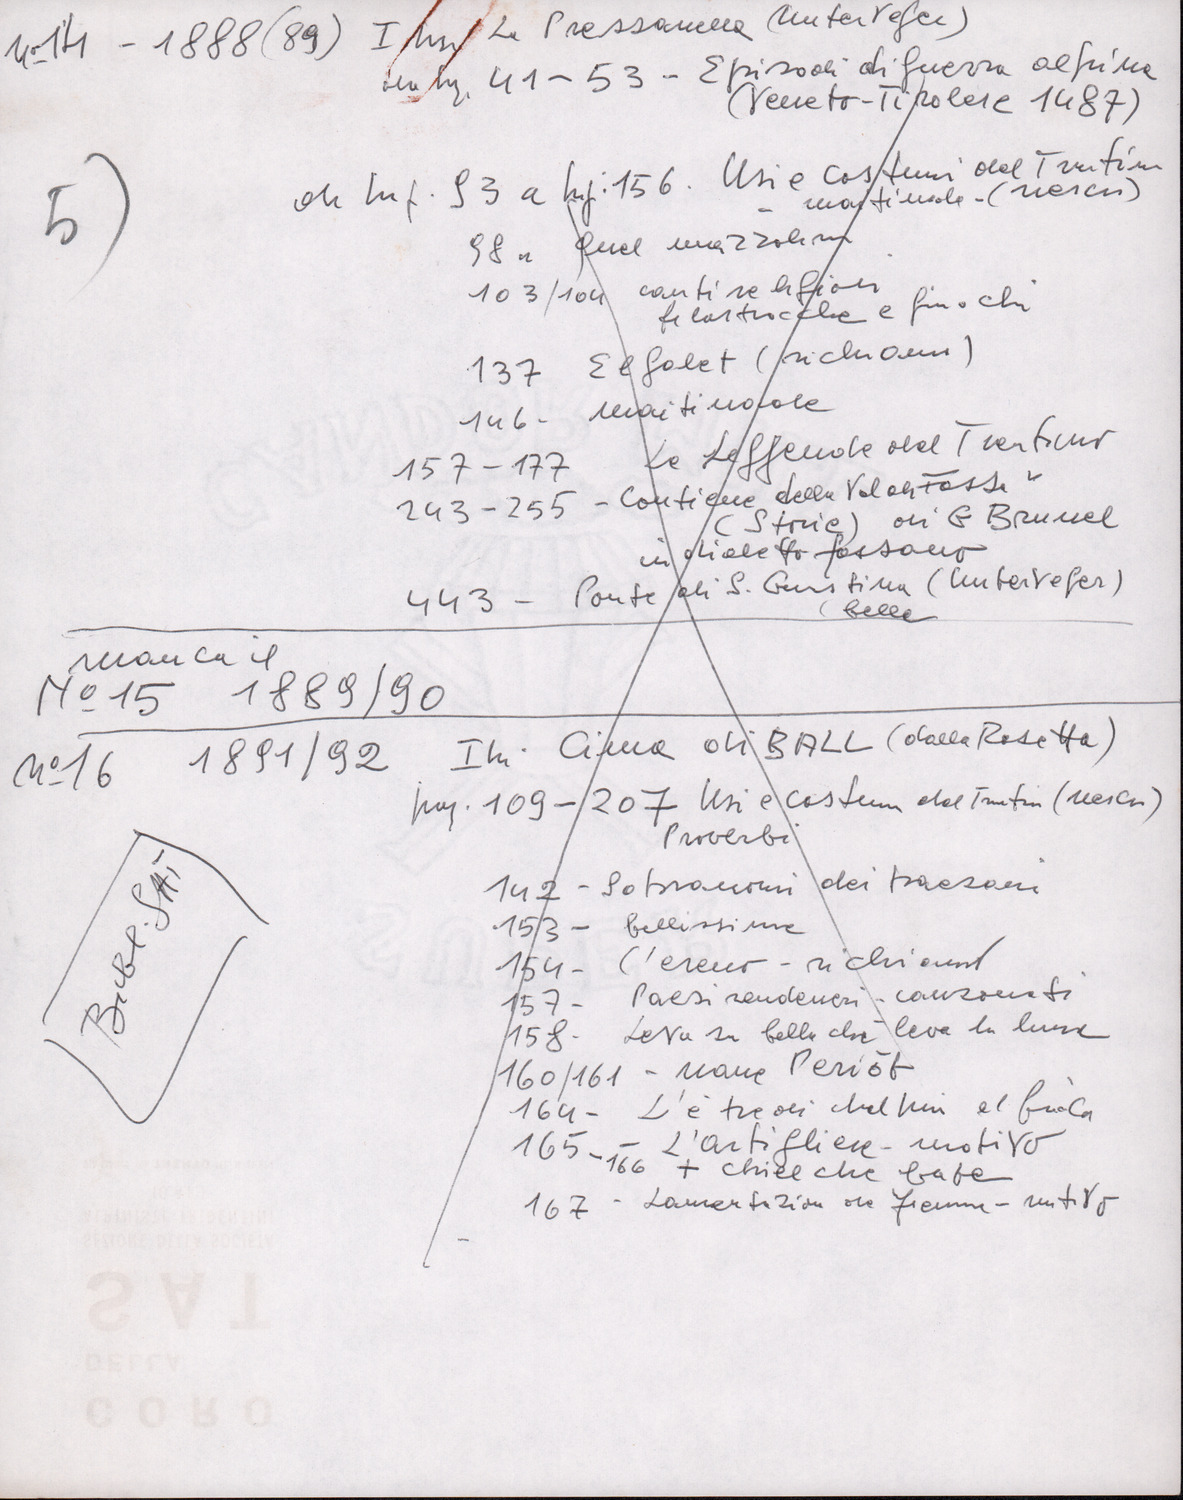 Nº 14 - 1888(89) Ill. La Pressanella (Unterveger)
da pag. 41-53 - Episodi di guerra alpina
(Veneto-Tirolese 1487)
5)
da pag. 93 a pag. 156. Usi e costumi del Trentino
- mattinade - (Nescr)
98 " quel mazzolin
103/104 canti religiosi
filastrocche e giuochi
137 El galet (richiami)
146 - maitinade
157-177 Le Leggende del Trentino
243-255 - Contiene della Val di Fassa "
(Storie) di G Brunel
in dialetto fassano
443 - Ponte di S. Giustina (Unterveger)
(bella
manca il
Nº 15 1889/90
Nº 16 1891/92 Ill. Cima di BALL (dalla Rosetta)
pag. 109-207 Usi e costumi del Trentin (Nescr)
Proverbi
142 - Sopranomi dei paesani
153 - bellissima
154 - L'ereno - richiami
157 - Paesi rendeneri - canzonati
158 - Leva su bella che leva la luna
160/161 - nane Periòt
164 - L'è tre dì
165 - 166 - L'artigliere - motivo
+ chi el che bate
167 - Lamentazion de Fiemme - motivo
-
Bibl. SAT
SAT
DELLA
CORO